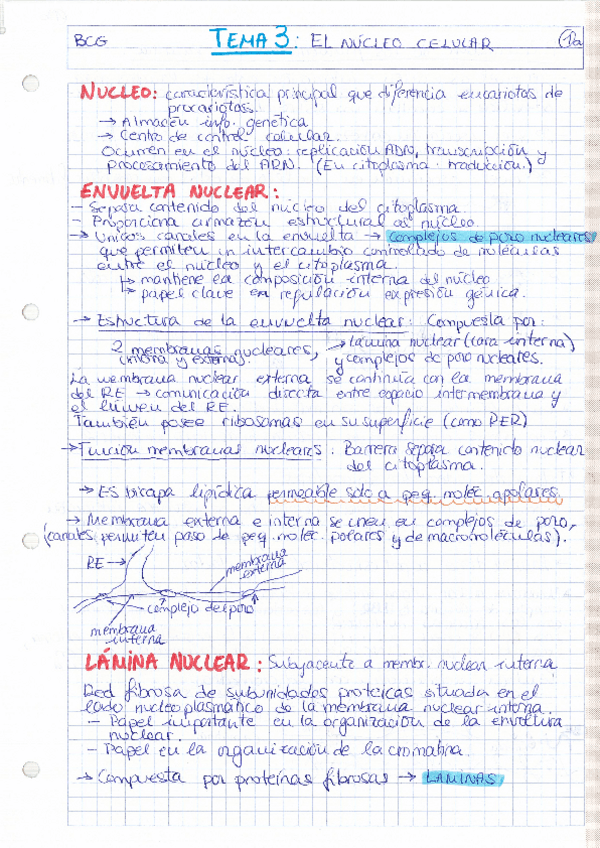 BCG TEMA 3: EL NÚCLEO CELULAR 1a
NUCLEO: característica principal que diferencia eucariotas de
procariotas.
→ Almacén info. genética
→ Centro de control celular.
Ocurren en el núcleo: replicación ADN, transcripción y
procesamiento del ARN. (En citoplasma: traducción.)
ENVUELTA NUCLEAR:
- Separa contenido del núcleo del citoplasma.
- Proporciona armazón estructural al núcleo
→ Únicos canales en la envuelta → complejos de poro nucleares
que permiten un intercambio controlado de moléculas
entre el núcleo y el citoplasma.
↳ mantiene la composición interna del núcleo
↳ papel clave en regulación expresión génica.
→ Estructura de la envuelta nuclear: Compuesta por:
2 membranas nucleares, → lámina nuclear (cara interna)
(interna y externa). y complejos de poro nucleares.
La membrana nuclear externa se continúa con la membrana
del RE → comunicación directa entre espacio intermembrana y
el lúmen del RE.
También posee ribosomas en su superficie (como RER)
→ Función membranas nucleares: Barrera separa contenido nuclear
del citoplasma.
→ Es bicapa lipídica permeable solo a peq. moléc. apolares.
→ Membrana externa e interna se unen en complejos de poro,
(canales permiten paso de peq. moléc. polares y de macromoléculas).
RE →
membrana
externa
complejo del poro
membrana
interna
LÁMINA NUCLEAR: Subyacente a membr. nuclear interna
Red fibrosa de subunidades proteicas situada en el
lado nucleoplasmático de la membrana nuclear interna.
- Papel importante en la organización de la envoltura
nuclear.
- Papel en la organización de la cromatina.
→ Compuesta por proteínas fibrosas → LAMINAS